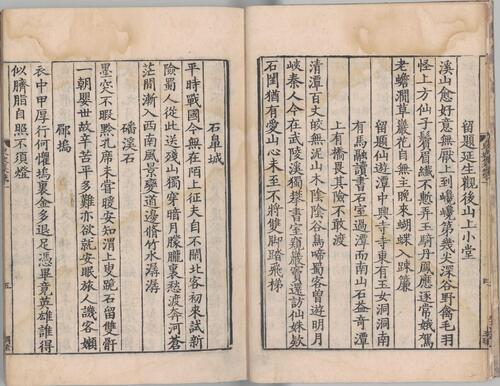 留題延生觀後山上小堂
溪山愈好意無厭上到巉巉第幾尖深谷野禽毛羽
怪上方仙子鬢眉纖不慙弄玉騎丹鳳應逐常娥駕
老蟾澗草巖花自無主晚來蝴蝶入踈簾
留題仙遊潭中興寺寺東有玉女洞洞南
有馬融讀書石室過潭而南山石益奇潭
上有橋畏其險不敢渡
清潭百丈皎無泥山木陰陰谷鳥啼蜀客曾遊明月
峽秦人今在武陵溪獨攀書室窺巖竇還訪仙姝欸
石閨猶有愛山心未至不將雙脚踏飛梯
石鼻城
平時戰國今無在陌上征夫自不閑北客初來試新
險蜀人從此送殘山獨穿暗月朦朧裏愁渡奔河蒼
茫間漸入西南風景變道邊脩竹水潺潺
磻溪石
墨突不暇黔孔席未嘗暖安知渭上叟跪石留雙骭
一朝嬰世故辛苦平多難亦欲就安眠旅人譏客嬾
郿塢
衣中甲厚行何懼塢裏金多退足憑畢竟英雄誰得
似臍脂自照不須燈